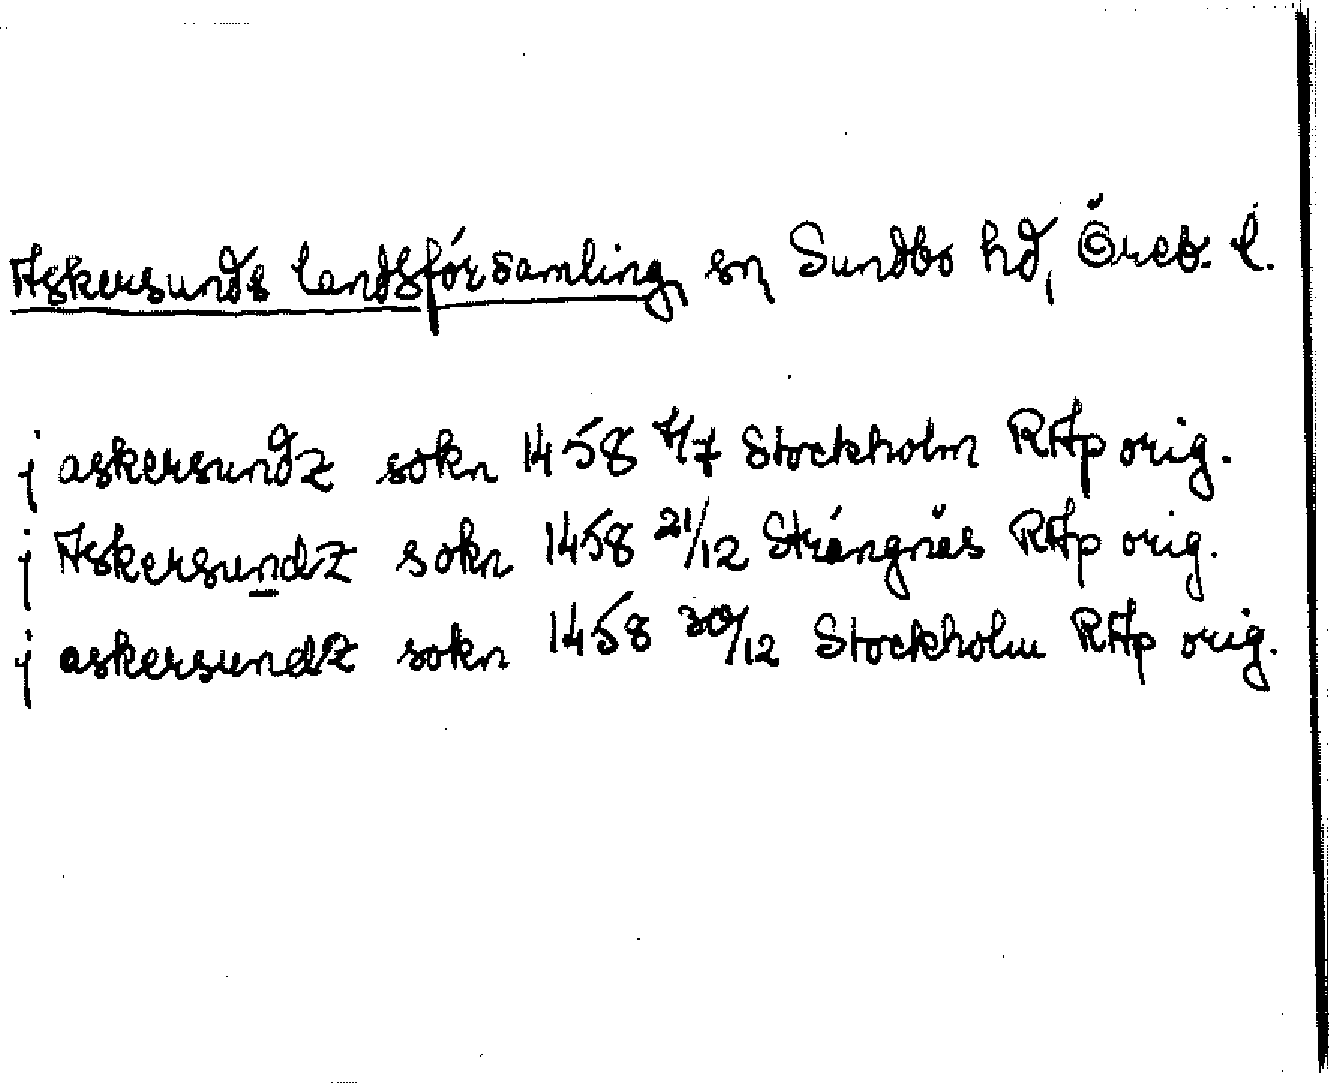 Askersunds landsförsamling, sn Sundbo hd, Öreb. l.
j askersundz sokn 1458 4/7 Stockholm RAp orig.
j Askersundz sokn 1458 21/12 Strängnäs RAp orig.
j askersundz sokn 1458 30/12 Stockholm RAp orig.